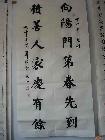 向陽門第春先到
積善人家慶有餘